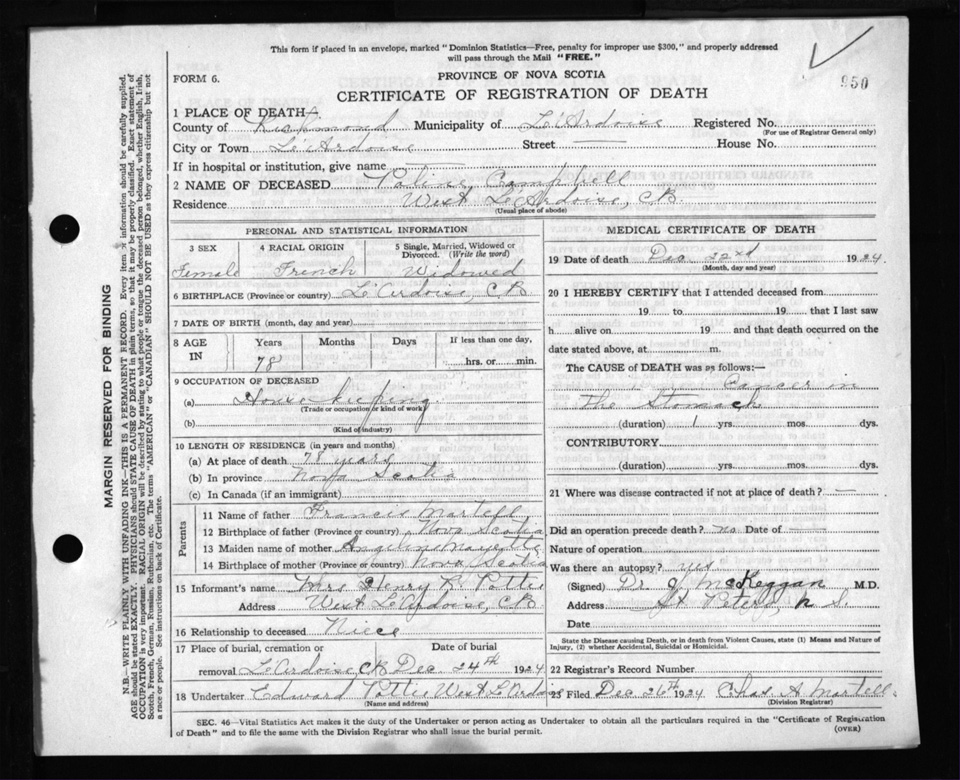 This form if placed in an envelope, marked "Dominion Statistics—Free, penalty for improper use $300," and properly addressed
will pass through the Mail "FREE."
950
FORM 6.
PROVINCE OF NOVA SCOTIA
CERTIFICATE OF REGISTRATION OF DEATH
1 PLACE OF DEATH
County of Richmond Municipality of L'Ardoise Registered No.
(For use of Registrar General only)
City or Town L'Ardoise Street — House No.
If in hospital or institution, give name —
2 NAME OF DECEASED Poline Campbell
Residence West L'Ardoise, C.B.
(Usual place of abode)
PERSONAL AND STATISTICAL INFORMATION
3 SEX 4 RACIAL ORIGIN 5 Single, Married, Widowed or
Divorced. (Write the word)
Female French Widowed
6 BIRTHPLACE (Province or country) L'Ardoise, C.B
7 DATE OF BIRTH (month, day and year)
8 AGE Years Months Days If less than one day,
IN 78 hrs. or min.
9 OCCUPATION OF DECEASED
(a) House keeping
(Trade or occupation or kind of work)
(b)
(Kind of industry)
10 LENGTH OF RESIDENCE (in years and months)
(a) At place of death 78 years
(b) In province Nova Scotia
(c) In Canada (if an immigrant)
Parents
11 Name of father Francis Martell
12 Birthplace of father (Province or country) Nova Scotia
13 Maiden name of mother Angeline
14 Birthplace of mother (Province or country) Nova Scotia
15 Informant's name Mrs Henry P. Pottie
Address West L'Ardoise, C.B
16 Relationship to deceased Niece
17 Place of burial, cremation or Date of burial
removal L'Ardoise, C.B Dec. 24th 1924
18 Undertaker Edward Pottie West L'Ardoise
(Name and address)
MEDICAL CERTIFICATE OF DEATH
19 Date of death Dec 22nd 1924.
(Month, day and year)
20 I HEREBY CERTIFY that I attended deceased from
19 to 19 that I last saw
h alive on 19 and that death occurred on the
date stated above, at m.
The CAUSE of DEATH was as follows:—
Cancer in
the Stomach
(duration) 1 yrs. mos. dys.
CONTRIBUTORY
(duration) yrs. mos. dys.
21 Where was disease contracted if not at place of death?
Did an operation precede death? no Date of —
Nature of operation
Was there an autopsy?
(Signed) Dr. J. McKeggan M.D.
Address St. Peters, N.S.
Date
State the Disease causing Death, or in death from Violent Causes, state (1) Means and Nature of
Injury, (2) whether Accidental, Suicidal or Homicidal.
22 Registrar's Record Number
23 Filed Dec 26th 1924 Chas. A. Martell
(Division Registrar)
SEC. 46—Vital Statistics Act makes it the duty of the Undertaker or person acting as Undertaker to obtain all the particulars required in the "Certificate of Registration
of Death" and to file the same with the Division Registrar who shall issue the burial permit.
(OVER)
MARGIN RESERVED FOR BINDING
N.B.—WRITE PLAINLY WITH UNFADING INK—THIS IS A PERMANENT RECORD. Every item of information should be carefully supplied.
AGE should be stated EXACTLY. PHYSICIANS should STATE CAUSE OF DEATH in plain terms, so that it may be properly classified. Exact statement of
OCCUPATION is very important. RACIAL ORIGIN will be described by stating to what people or tongue the deceased person belonged, whether English, Irish,
Scotch, French, German, Russian, Ruthenian, etc. The terms "AMERICAN" or "CANADIAN" SHOULD NOT BE USED as they express citizenship but not
a race or people. See instructions on back of Certificate.